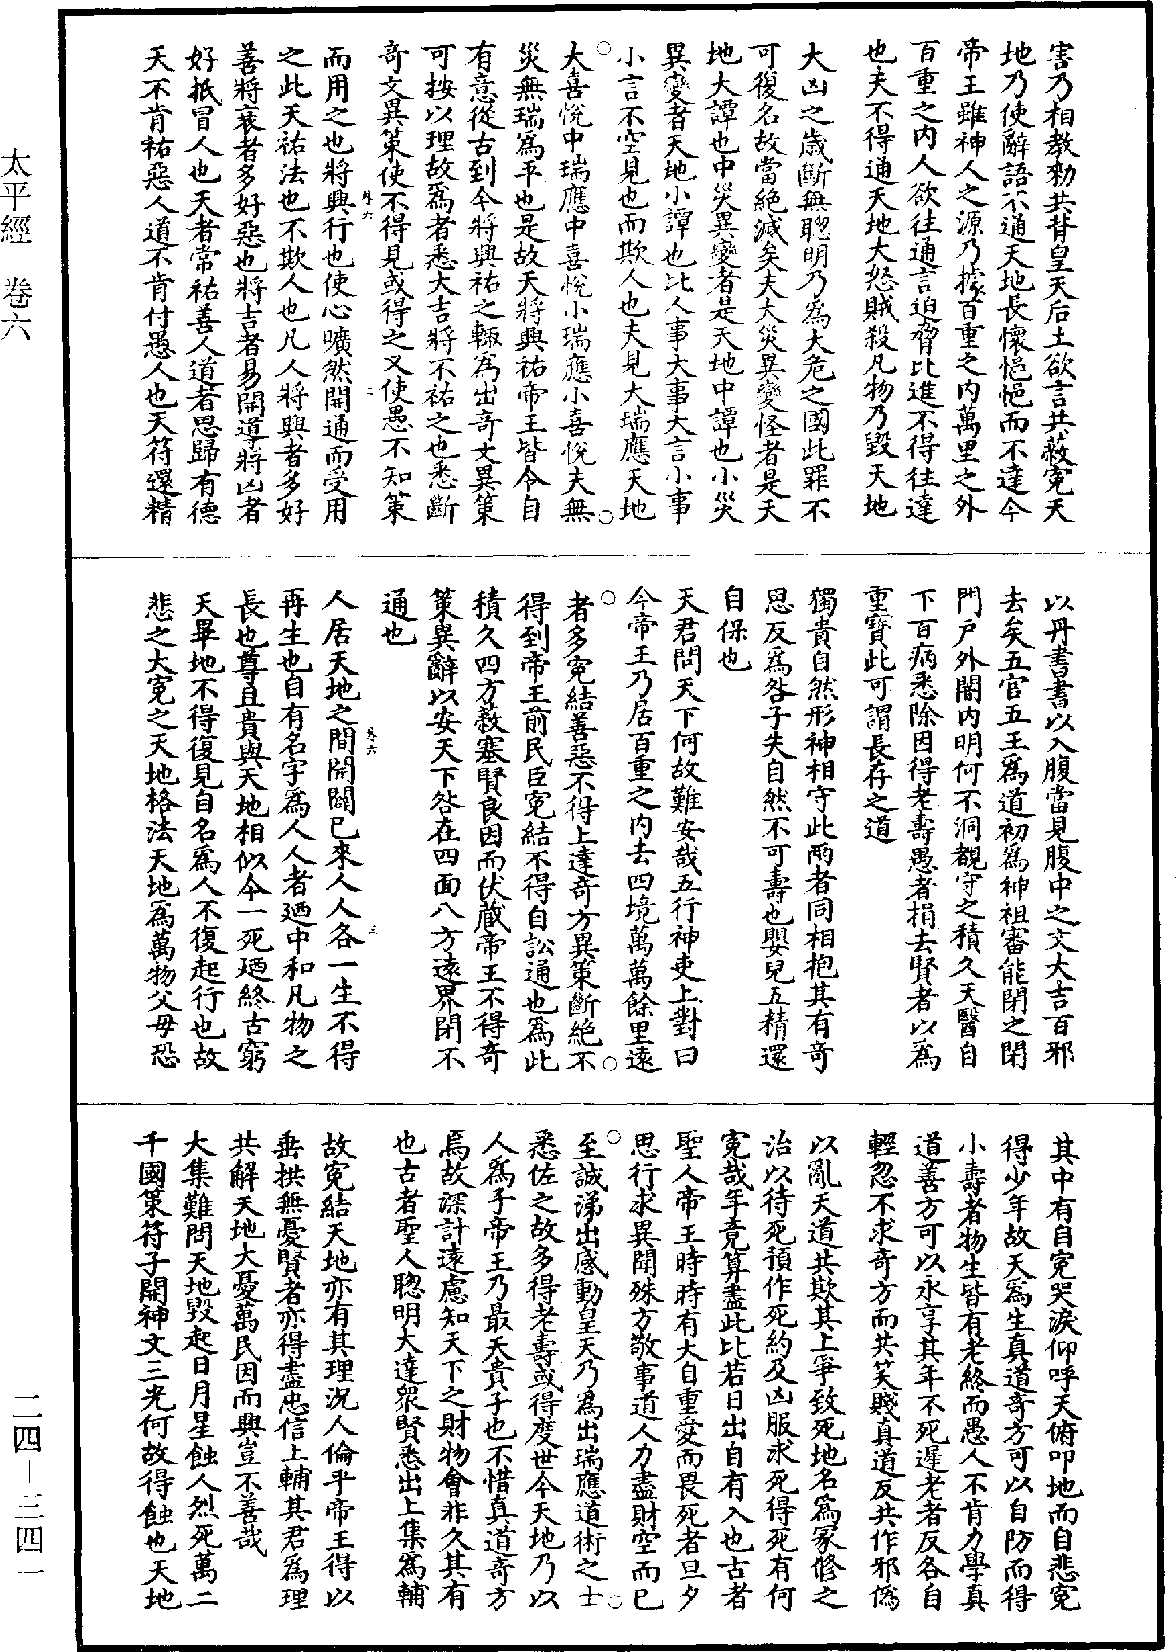 太平經 卷六
二四—三四一
害乃相教勑共背皇天后土欲言共蔽寃天
地乃使辭語不通天地長懷悒悒而不達今
帝王雖神人之源乃據百重之内萬里之外
百重之内人欲往通言迫脅比進不得往達
也夫不得通天地大怒賊殺凡物乃毀天地
大凶之歲斷無聰明乃爲大危之國此罪不
可復名故當絶滅矣夫大災異變怪者是天
地大譚也中災異變者是天地中譚也小災
異變者天地小譚也比人事大事大言小事
小言不空見也而欺人也夫見大瑞應天地
大喜悅中瑞應中喜悅小瑞應小喜悅夫無
災無瑞爲平也是故天將興祐帝王皆令自
有意從古到今將興祐之輒爲出奇文異策
可按以理故爲者悉大吉將不祐之也悉斷
奇文異策使不得見或得之又使愚不知策
卷六 二
而用之也將興行也使心曠然開通而受用
之此天祐法也不欺人也凡人將興者多好
善將衰者多好惡也將吉者易開道將凶者
好抵冒人也天者常祐善人道者思歸有德
天不肯祐惡人道不肯付愚人也天符還精
以丹書書以入腹當見腹中之文大吉百邪
去矣五官五王爲道初爲神祖審能閉之閉
門戶外闇内明何不洞覩守之積久天醫自
下百病悉除因得老壽愚者捐去賢者以爲
重寶此可謂長存之道
獨貴自然形神相守此兩者同相抱其有奇
思反爲咎子失自然不可壽也嬰兒五精還
自保也
天君問天下何故難安哉五行神吏上對曰
今帝王乃居百重之内去四境萬萬餘里遠
者多寃結善惡不得上達奇方異策斷絶不
得到帝王前民臣寃結不得自訟通也爲此
積久四方蔽塞賢良因而伏藏帝王不得奇
策異辭以安天下咎在四面八方遠界閉不
通也
卷六 三
人居天地之間開闢已來人人各一生不得
再生也自有名字爲人人者廼中和凡物之
長也尊且貴與天地相似今一死廼終古窮
天畢地不得復見自名爲人不復起行也故
悲之大寃之天地格法天地爲萬物父母恐
其中有自寃哭淚仰呼天俯叩地而自悲寃
得少年故天爲生真道奇方可以自防而得
小壽者物生皆有老終而愚人不肯力學真
道善方可以永享其年不死遲老者反各自
輕忽不求奇方而共笑賤真道反共作邪僞
以亂天道共欺其上爭致死地名爲冢修之
治以待死預作死約及凶服求死得死有何
寃哉年竟算盡此比若日出自有入也古者
聖人帝王時時有大自重愛而畏死者旦夕
思行求異聞殊方敬事道人力盡財空而已
至誠涕出感動皇天乃爲出瑞應道術之士
悉佐之故多得老壽或得度世今天地乃以
人爲子帝王乃最天貴子也不惜真道奇方
焉故深計遠慮知天下之財物會非久其有
也古者聖人聰明大達衆賢悉出上集爲輔
故寃結天地亦有其理況人倫乎帝王得以
垂拱無憂賢者亦得盡忠信上輔其君爲理
共解天地大憂萬民因而興豈不善哉
大集難問天地毀起日月星蝕人烈死萬二
千國策符子開神文三光何故得蝕也天地